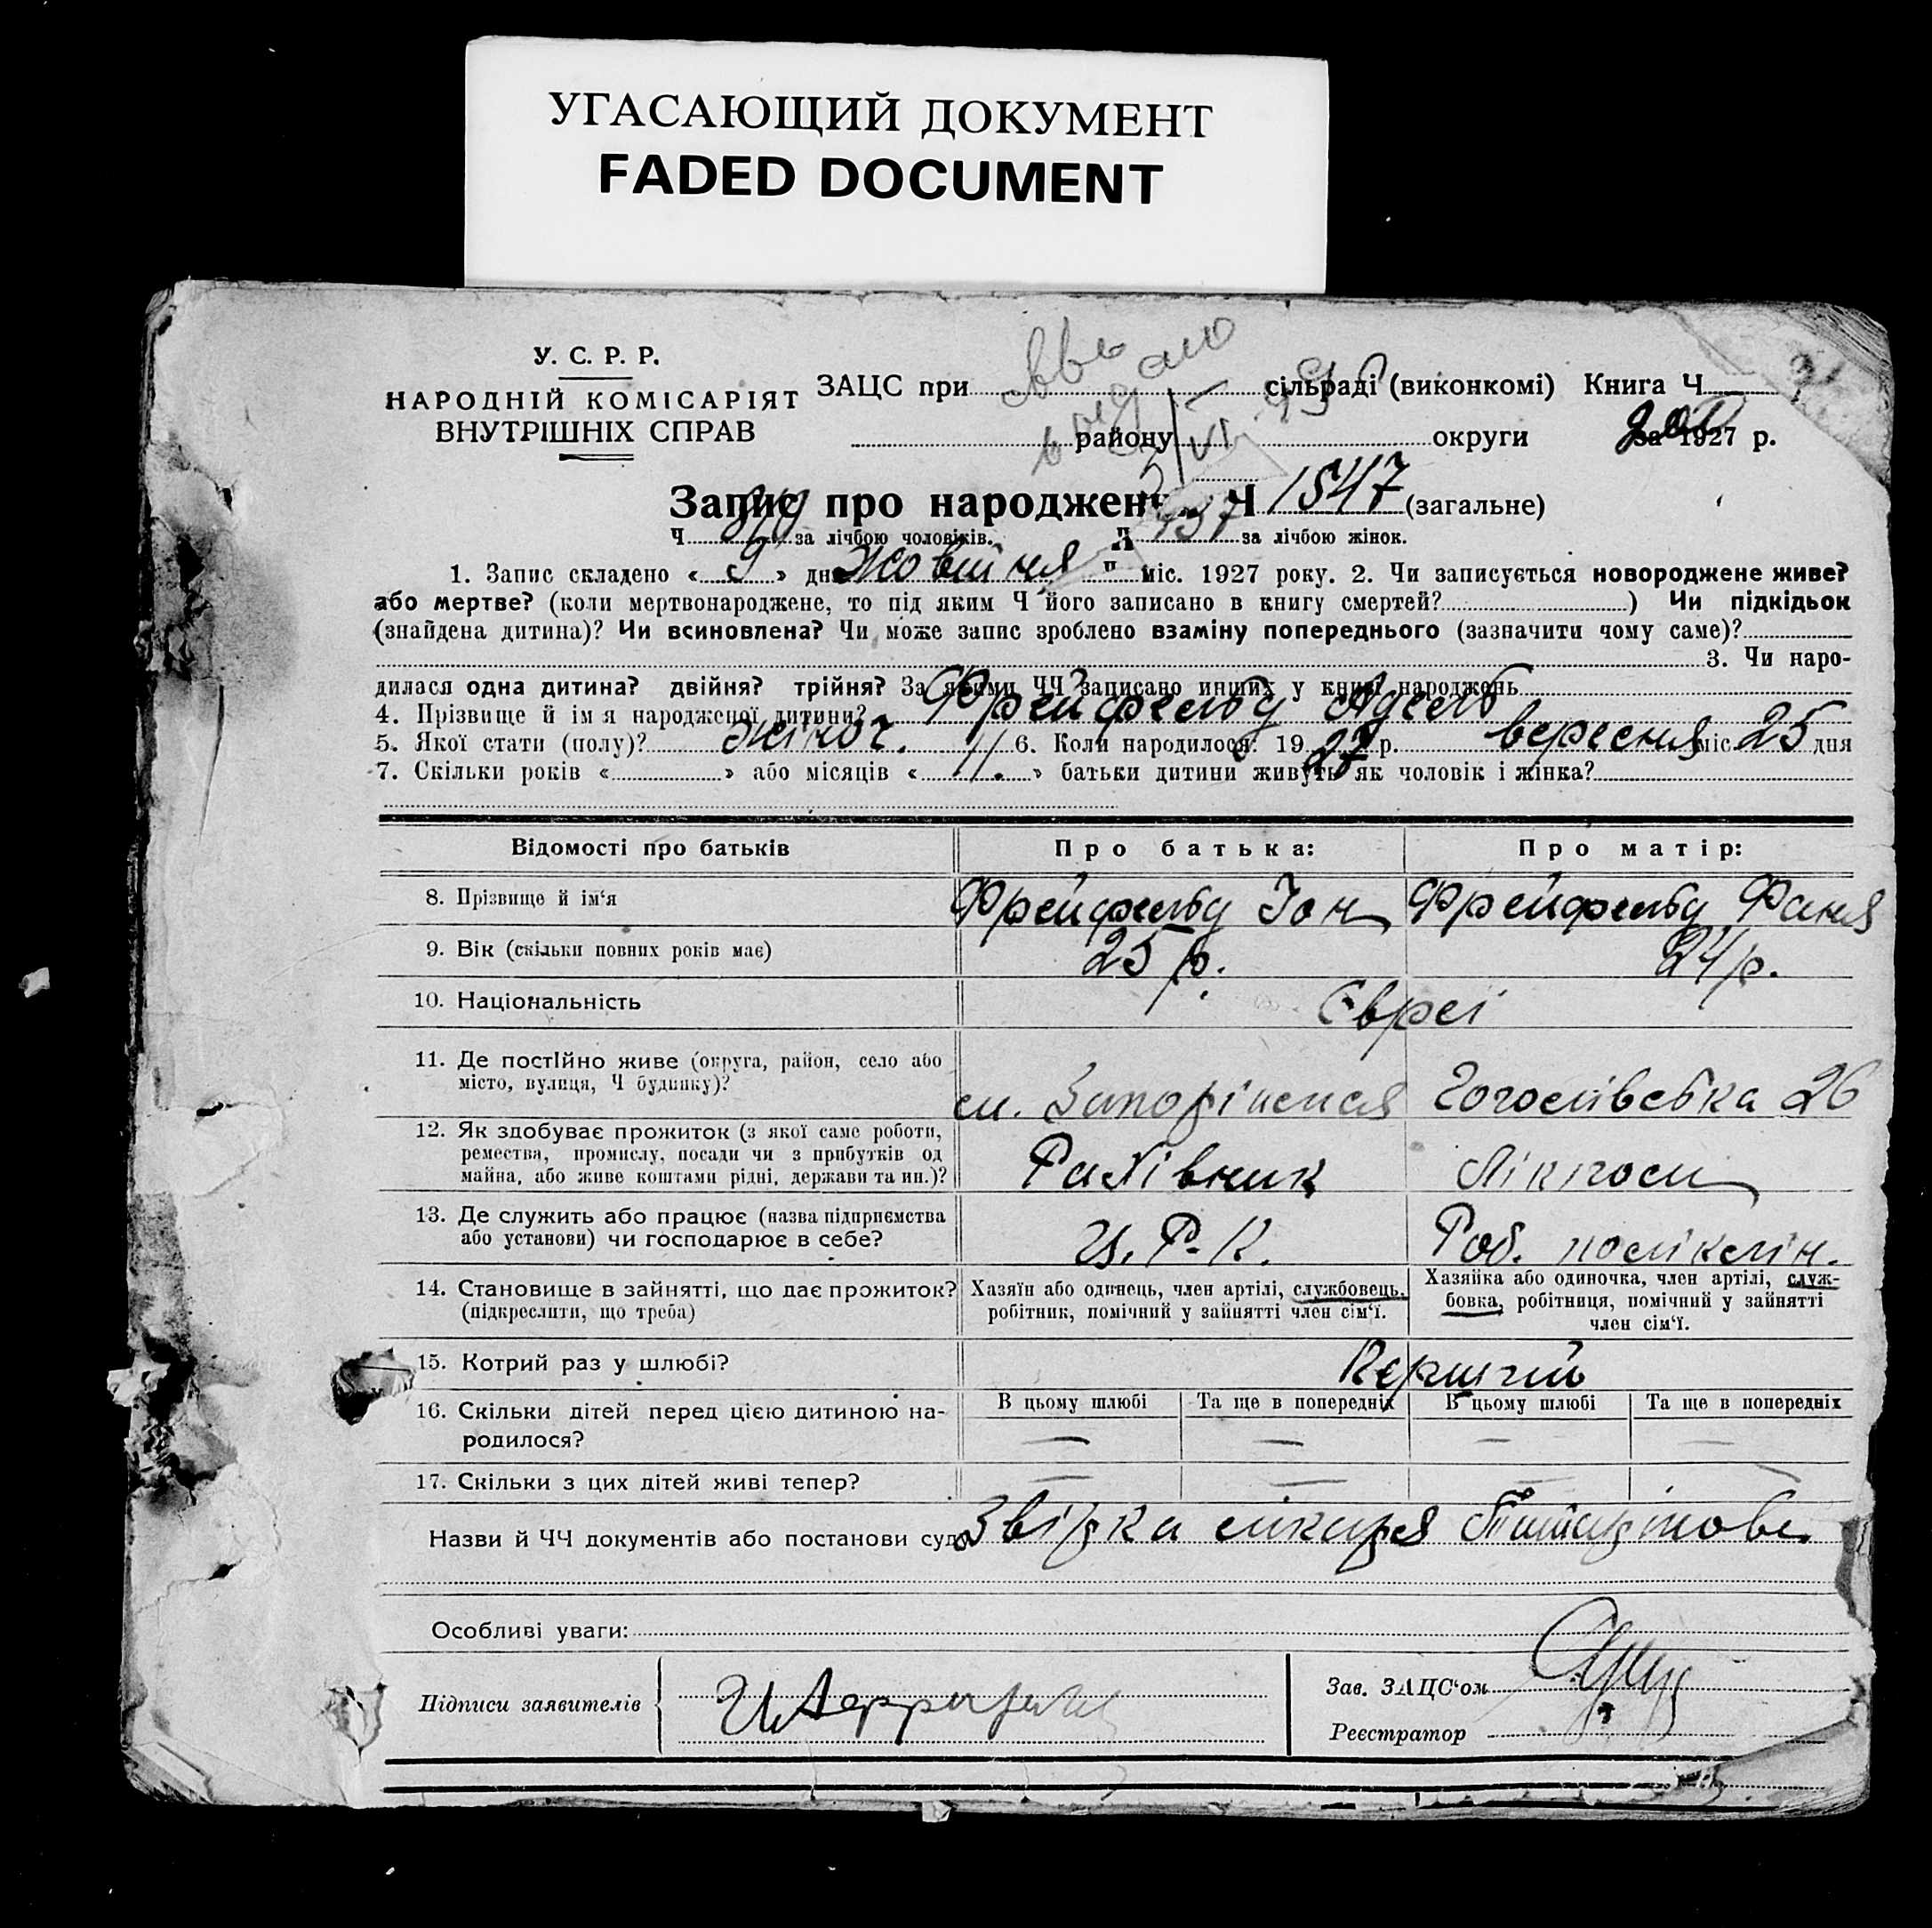 УГАСАЮЩИЙ ДОКУМЕНТ
FADED DOCUMENT
У. С. Р. Р.
НАРОДНІЙ КОМІСАРІЯТ
ВНУТРІШНІХ СПРАВ
ЗАЦС при сільраді (виконкомі) Книга Ч
району округи за 1927 р.
Запис про народження Ч 1547 (загальне)
Ч за лічбою чоловіків. Ч за лічбою жінок.
1. Запис складено « 9 » дня Жовтня міс. 1927 року. 2. Чи записується новороджене живе?
або мертве? (коли мертвонароджене, то під яким Ч його записано в книгу смертей? ) Чи підкідьок
(знайдена дитина)? Чи всиновлена? Чи може запис зроблено взаміну попереднього (зазначити чому саме)?
3. Чи наро-
дилася одна дитина? двійня? трійня? За якими ЧЧ записано инших у книзі народжень
4. Прізвище й ім я народженої дитини? Фрейфельд Адель
5. Якої стати (полу)? жіноч. 6. Коли народилося: 19 27 р. вересня міс. 25 дня
7. Скільки років « » або місяців « 11. » батьки дитини живуть як чоловік і жінка?
Відомості про батьків Про батька: Про матір:
8. Прізвище й ім‘я Фрейфельд Іон Фрейфельд Фаня
9. Вік (скільки повних років має) 25 р. 24 р.
10. Національність Євреї
11. Де постійно живе (округа, район, село або
місто, вулиця, Ч будинку)? м. Запоріжжя Гоголівська 26
12. Як здобуває прожиток (з якої саме роботи,
ремества, промислу, посади чи з прибутків од
майна, або живе коштами рідні, держави та ин.)? Рахівник
13. Де служить або працює (назва підприємства
або установи) чи господарює в себе? Ц. Р. К. Роб. поліклін.
14. Становище в зайнятті, що дає прожиток?
(підкреслити, що треба)
Хазяїн або одинець, член артілі, службовець,
робітник, помічний у зайнятті член сім‘ї.
Хазяйка або одиночка, член артілі, служ-
бовка, робітниця, помічний у зайнятті
член сім‘ї.
15. Котрий раз у шлюбі? Перший
16. Скільки дітей перед цією дитиною на-
родилося?
В цьому шлюбі Та ще в попередніх В цьому шлюбі Та ще в попередніх
— — — —
17. Скільки з цих дітей живі тепер? — — — —
Назви й ЧЧ документів або постанови суду Звідка лікаря
Особливі уваги:
Підписи заявителів
Зав. ЗАЦС‘ом
Реєстратор